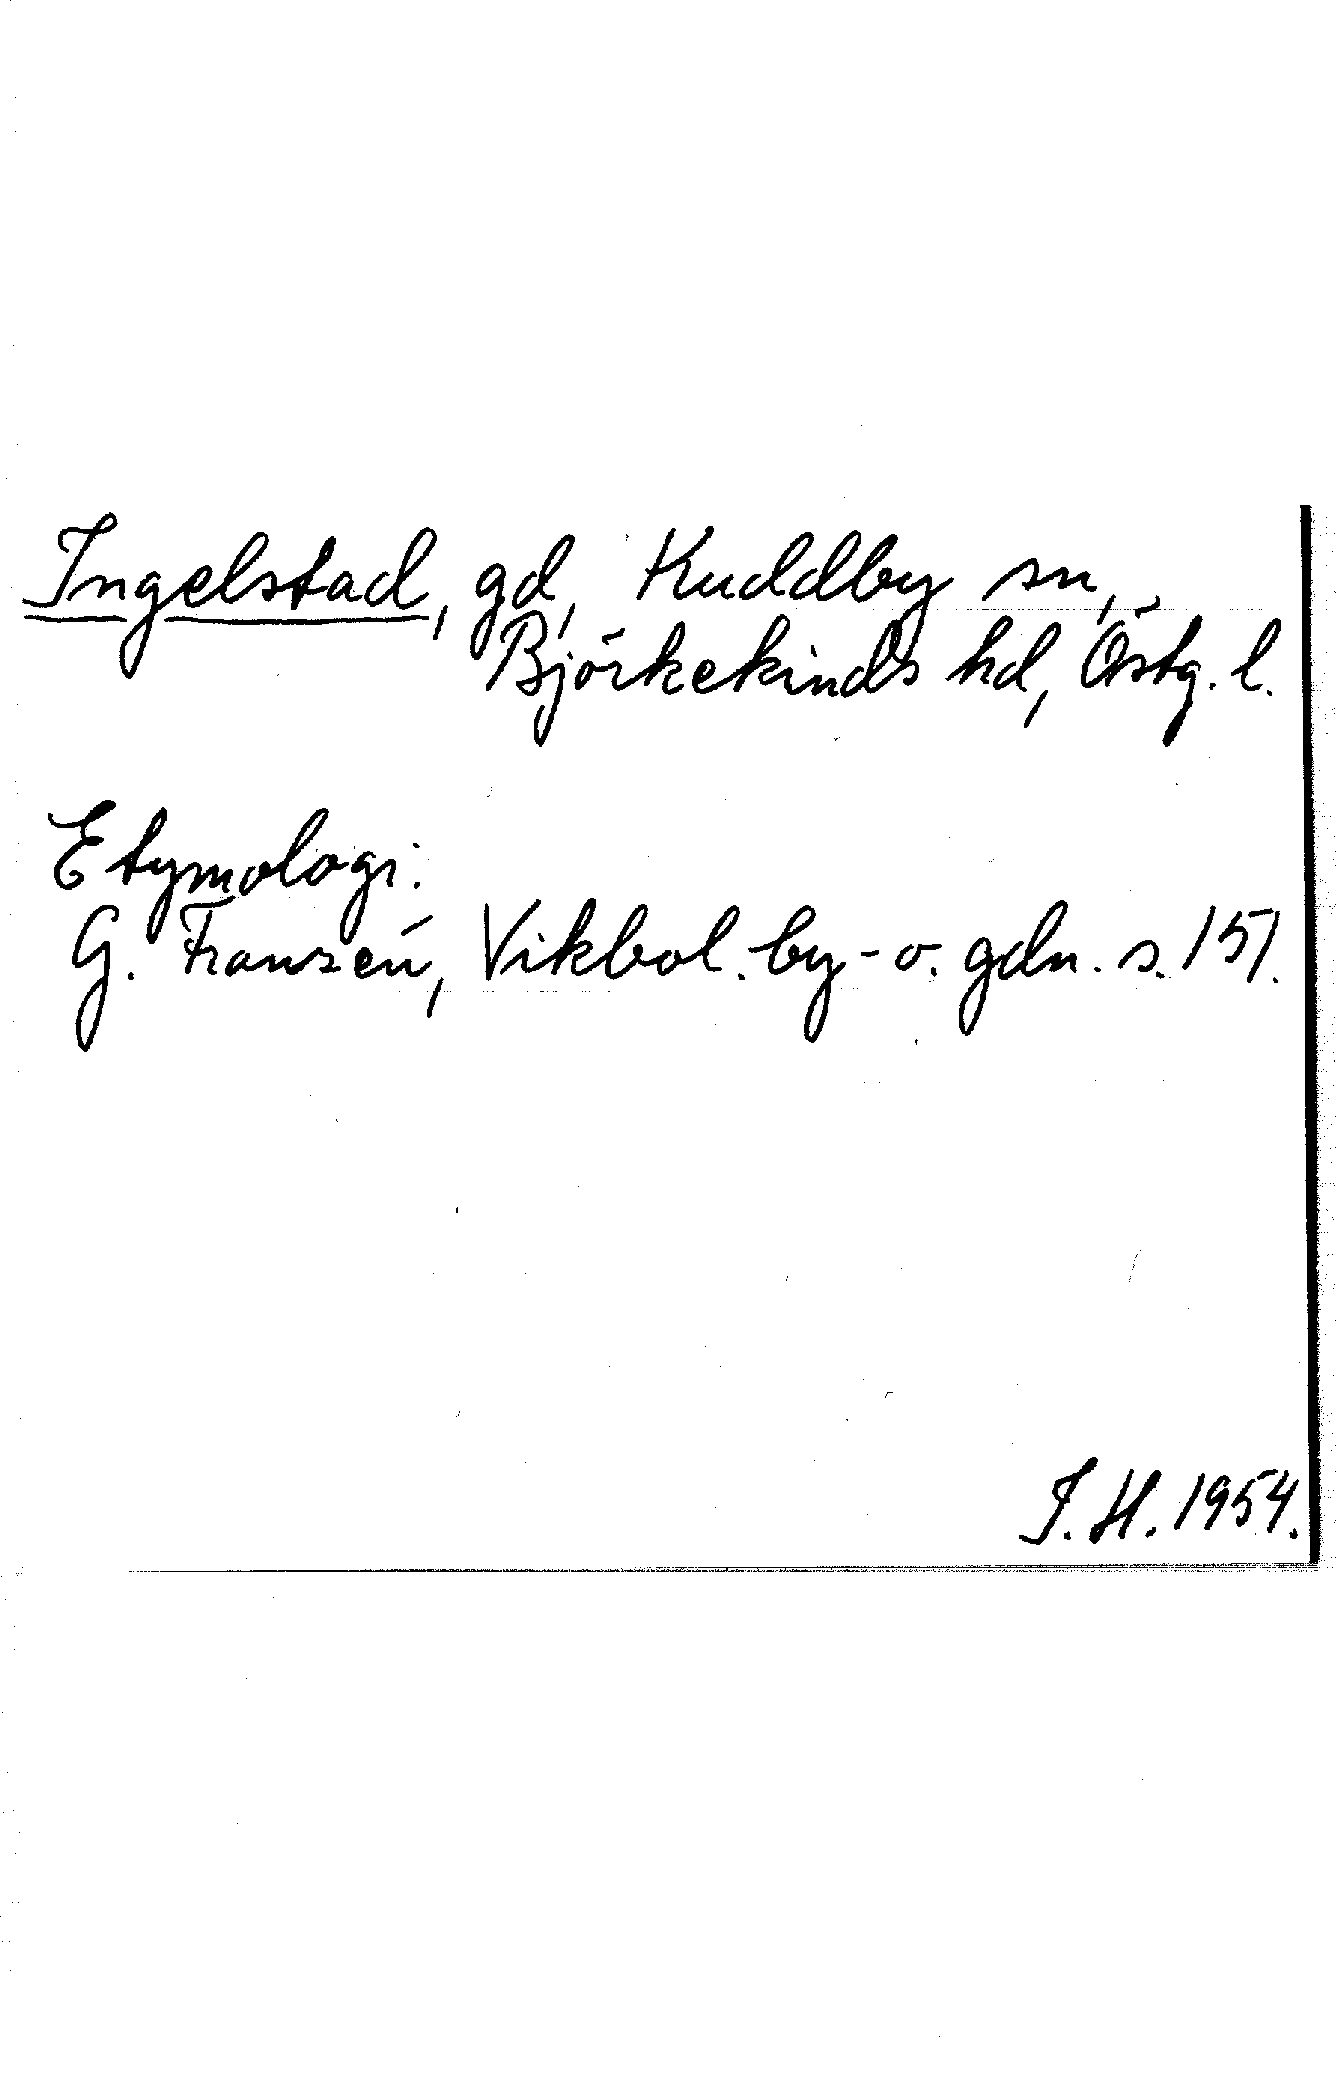 Ingelstad, gd, Kuddby sn,
Björkekinds hd, Östg. l.
Etymologi.
G. Franzén, Vikbol. by- o. gdn. s. 151.
I. H. 1954.